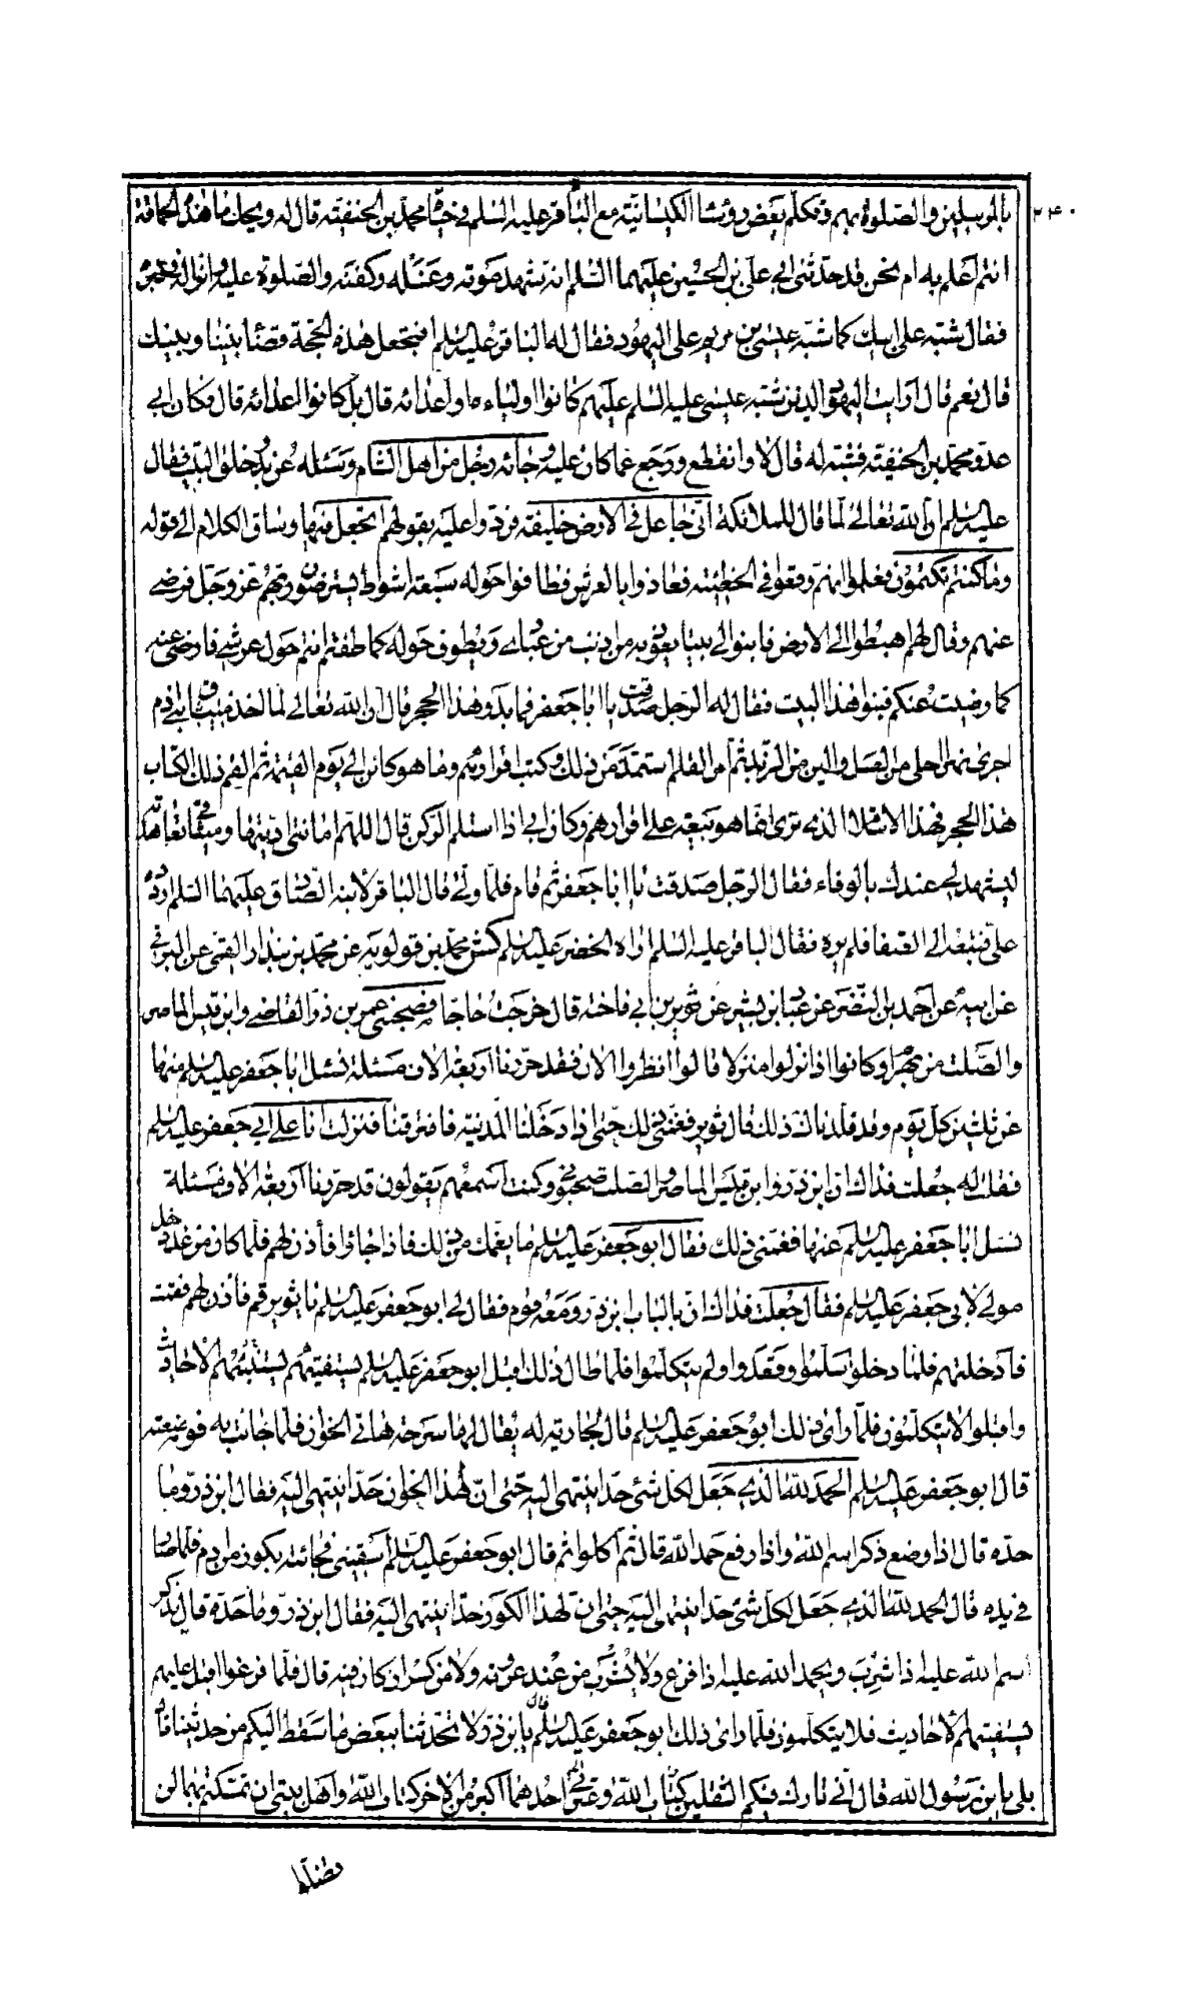 ۲۴۰
بالمرسلين والصلوة بهم وتكلم بعض رؤسا الكيسانية مع الباقر عليه السلم في حيوة محمد بن الحنفية قال له ويحك ما هذه الحماقة
انتم اعلم به ام نحن قد حدثني ابي علي بن الحسين عليهما السلم انه شهد موته وغسله وكفنه والصلوة عليه وانزاله في قبره
فقال شبه على ابيك كما شبه عيسى بن مريم على اليهود فقال له الباقر عليه السلم افتجعل هذه الحجة قضا بيننا وبينك
قال نعم قال ارايت اليهود الذين شبه عيسى عليه السلم عليهم كانوا اولياءه او اعدائه قال بل كانوا اعدائه قال فكان ابي
عدو محمد بن الحنفية فشبه له قال لا وانقطع ورجع عما كان عليه وجائه رجل من اهل الشام وسئله عن بدو خلق البيت فقال
عليه السلم ان الله تعالى لما قال للملائكة اني جاعل في الارض خليفة فردوا عليه بقولهم اتجعل فيها وساق الكلام الى قوله
وما كنتم تكتمون فعلموا انهم وقعوا في الخطيئة فعاذوا بالعرش فطافوا حوله سبعة اشواط يسترضون ربهم عز وجل فرضي
عنهم وقال لهم اهبطوا الى الارض فابنوا لي بيتا يعوذ به من اذنب من عبادي ويطوف حوله كما طفتم انتم حول عرشي فارضى عنه
كما رضيت عنكم فبنوا هذا البيت فقال له الرجل صدقت يا ابا جعفر فما بدو هذا الحجر قال ان الله تعالى لما اخذ ميثاق بني ادم
اجرى نهرا احلى من العسل والين من الزبد ثم امر القلم استمد من ذلك وكتب اقرارهم وما هو كائن الى يوم القيمة ثم القم ذلك الكتاب
هذا الحجر فهذا الاستلام الذي ترى انما هو بيعة على اقرارهم وكان ابي اذا استلم الركن قال اللهم امانتي اديتها وميثاقي تعاهدته
ليشهد لي عندك بالوفاء فقال الرجل صدقت يا ابا جعفر ثم قام فلما ولى قال الباقر لابنه الصادق عليهما السلم اردده
علي فتبعه الى الصفا فلم يره فقال الباقر عليه السلم اراه الخضر عليه السلم كش محمد بن قولويه عن محمد بن بندار القمي عن البرقي
عن ابيه عن احمد بن النضر عن عباد بن بشير عن ثوير بن ابي فاخته قال خرجت حاجا فصحبني عمر بن ذر القاضي وابن قيس الماصر
والصلت بن بهرام وكانوا اذا نزلوا منزلا قالوا انظروا الان فقد حررنا اربعة الاف مسئلة نسئل ابا جعفر عليه السلم منها
عن ثلثين كل يوم وقد قلدناك ذلك قال ثوير فغمني ذلك حتى اذا دخلنا المدينة فافترقنا فنزلت انا على ابي جعفر عليه السلم
فقلت له جعلت فداك ان ابن ذر وابن قيس الماصر والصلت صحبوني وكنت اسمعهم يقولون قد حررنا اربعة الاف مسئلة
نسئل ابا جعفر عليه السلم عنها فغمني ذلك فقال ابو جعفر عليه السلم ما يغمك من ذلك فاذا جاؤا فأذن لهم فلما كان من غد دخل
مولى لابي جعفر عليه السلم فقال جعلت فداك ان بالباب ابن ذر ومعه قوم فقال لي ابو جعفر عليه السلم يا ثوير قم فأذن لهم فقمت
فأدخلتهم فلما دخلوا سلموا وقعدوا ولم يتكلموا فلما طال ذلك اقبل ابو جعفر عليه السلم يستفتيهم الاحاديث
واقبلوا لا يتكلمون فلما رأى ذلك ابو جعفر عليه السلم قال لجارية له يقال لها سرحة هاتي الخوان فلما جائت به فوضعته
قال ابو جعفر عليه السلم الحمد لله الذي جعل لكل شئ حدا ينتهى اليه حتى ان لهذا الخوان حدا ينتهى اليه فقال ابن ذر وما
حده قال اذا وضع ذكر اسم الله واذا رفع حمد الله قال ثم اكلوا ثم قال ابو جعفر عليه السلم اسقيني فجائته بكوز من ادم فلما صار
في يده قال الحمد لله الذي جعل لكل شئ حدا ينتهى اليه حتى ان لهذا الكوز حدا ينتهى اليه فقال ابن ذر وما حده قال يذكر
اسم الله عليه اذا شرب ويحمد الله عليه اذا فرغ ولا يشرب من عند عروته ولا من كسر ان كان فيه قال فلما فرغوا اقبل عليهم
يستفتيهم الاحاديث فلا يتكلمون فلما رأى ذلك ابو جعفر عليه السلم قال يا بن ذر الا تحدثنا ببعض ما سقط اليكم من حديثنا قال
بلى يا بن رسول الله قال اني تارك فيكم الثقلين كتاب الله وعترتي احدهما اكبر من الاخر كتاب الله واهل بيتي ان تمسكتم بهما لن
تضلوا